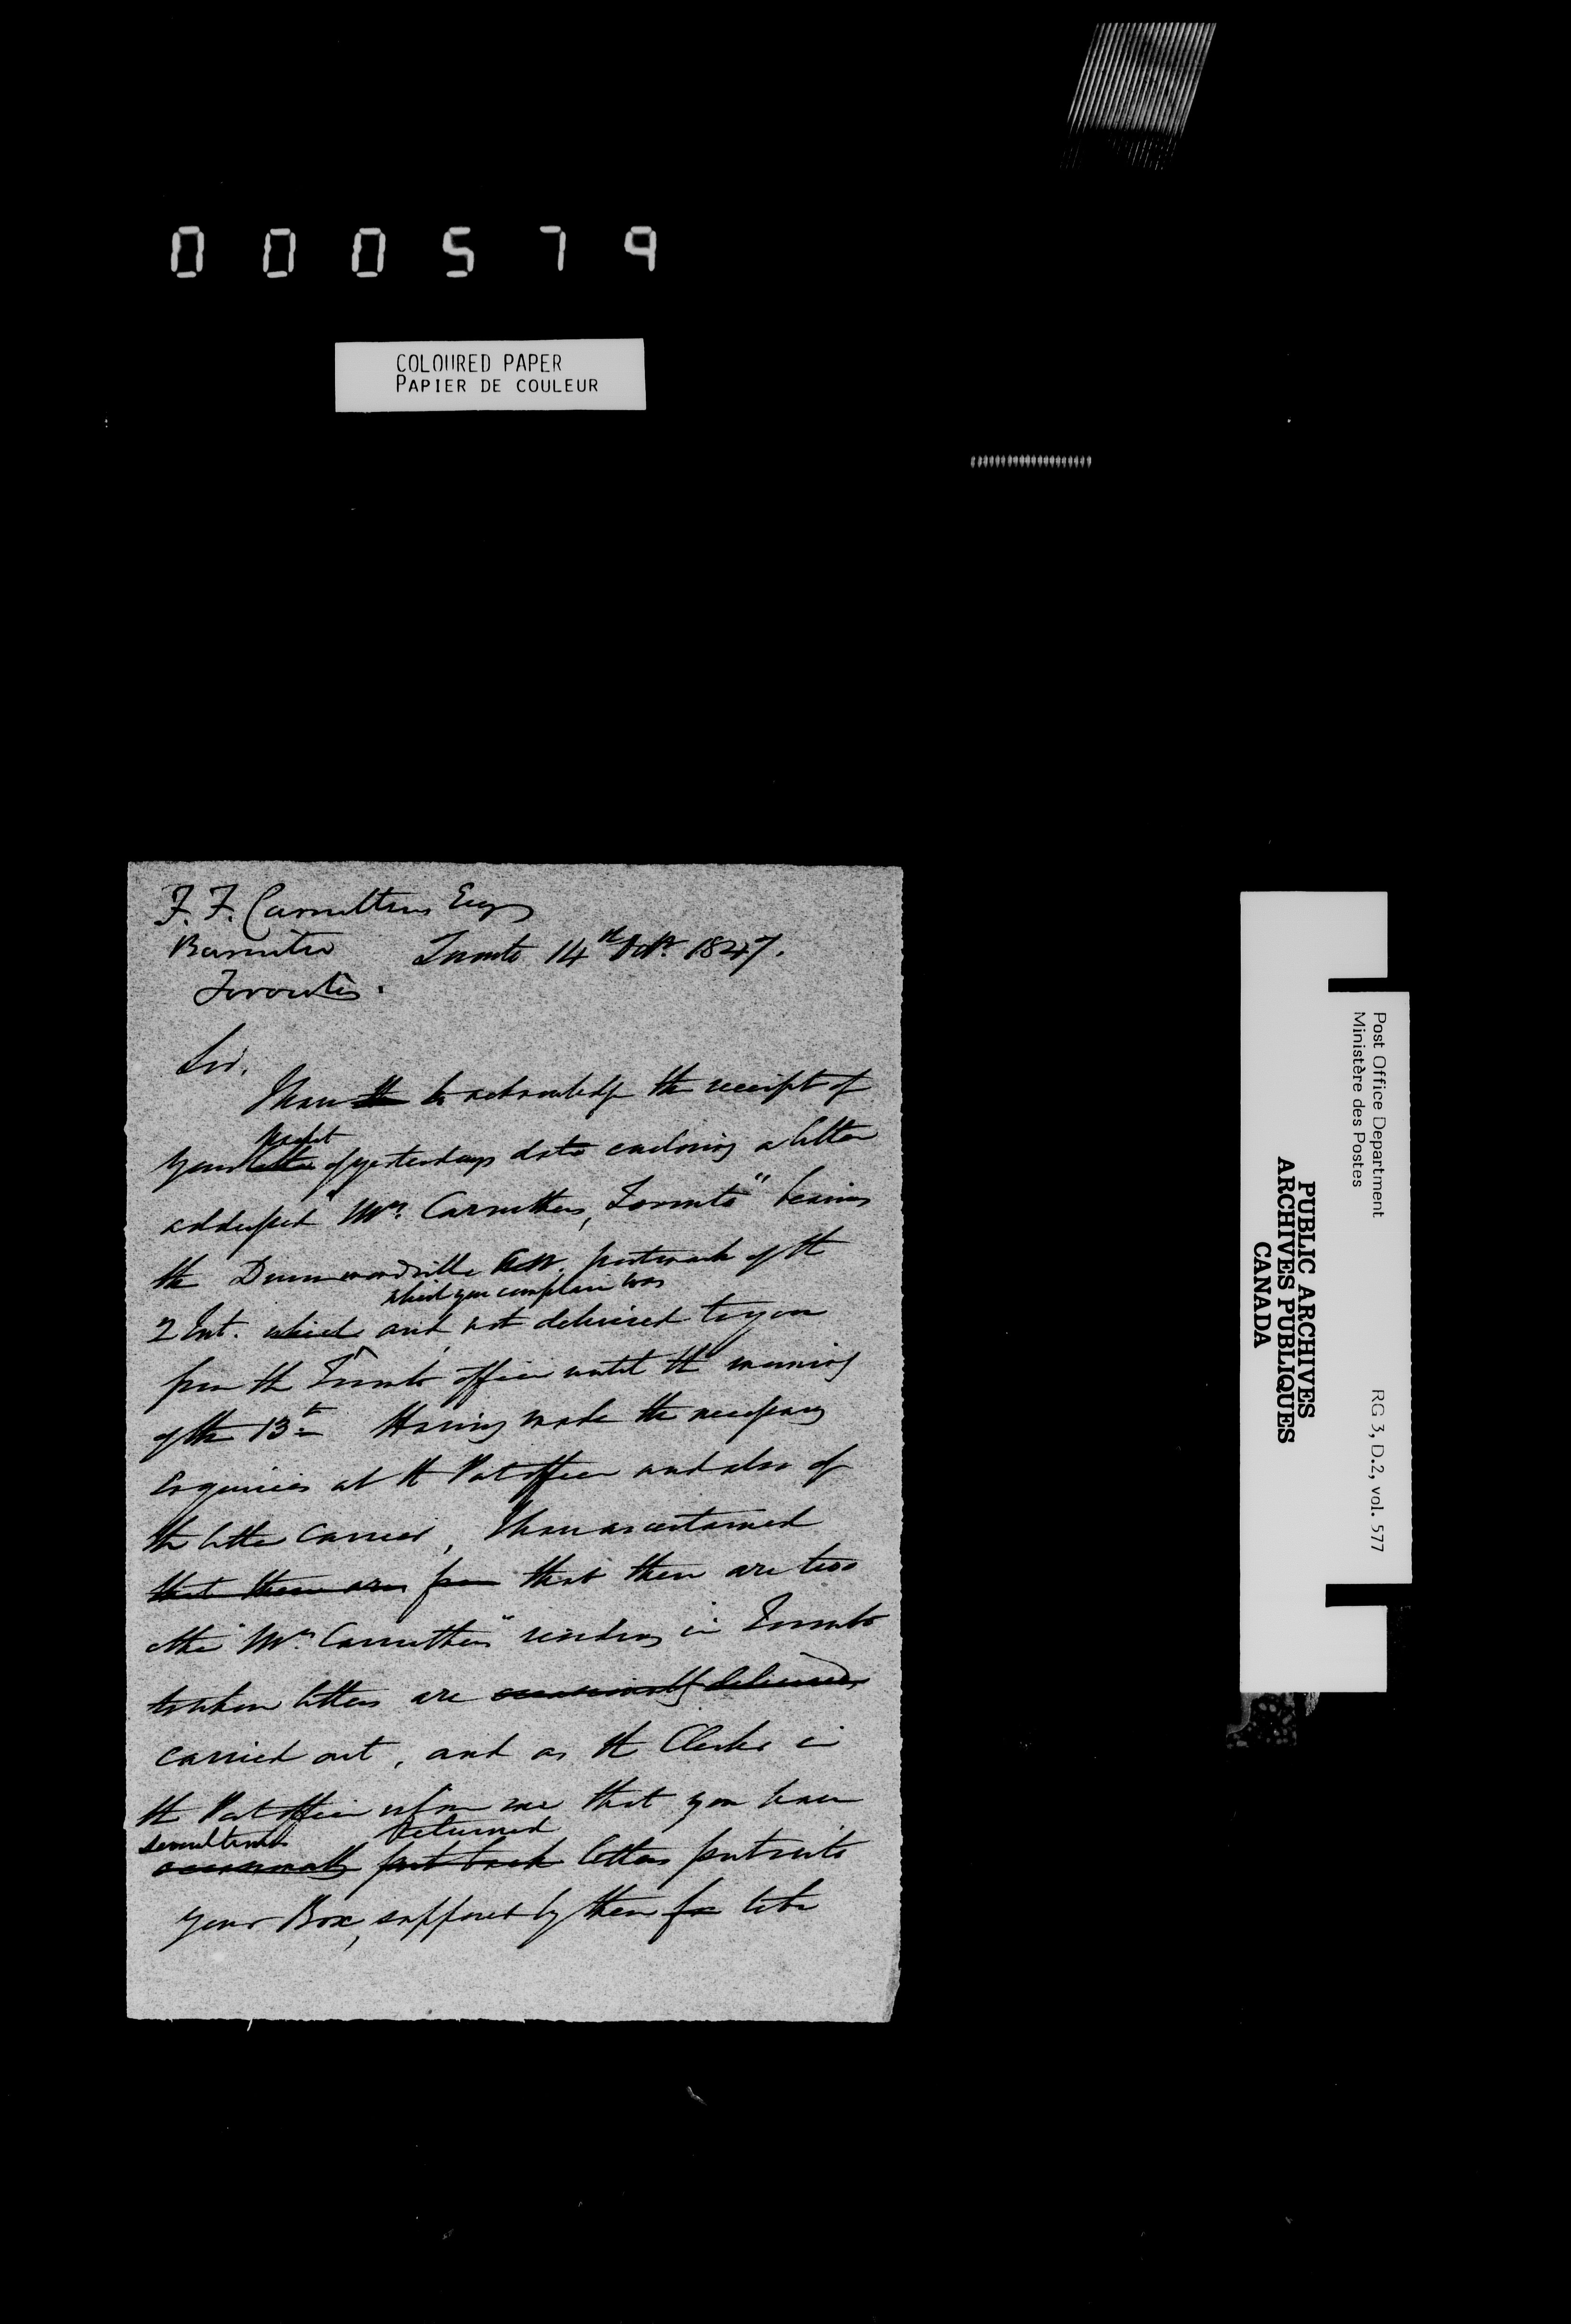 000579
COLOURED PAPER
PAPIER DE COULEUR
F. F. Carruthers Esq
Barrister Toronto 14th Octr. 1847.
Toronto.
Sir,
I have to acknowledge the receipt of
packet
your letter of yesterdays date enclosing a letter
addressed "Mr. Carruthers, Toronto" bearing
the Drummondville postmark of the
which you complain was
2 Inst. which and not delivered to you
from the Toronto office until the morning
of the 13th Having made the necessary
enquiries at the Post office and also of
the letter carrier, I have ascertained
that there are from that there are two
other "Mr. Carruthers" residing in Toronto
to whom letters are occasionally delivered
carried out, and as the Clerks in
the Post office inform me that you have
several times returned
occasionally put back letters put into
your Box, supposed by them for to be
Post Office Department
Ministère des Postes
RG 3, D.2, vol. 577
PUBLIC ARCHIVES
ARCHIVES PUBLIQUES
CANADA